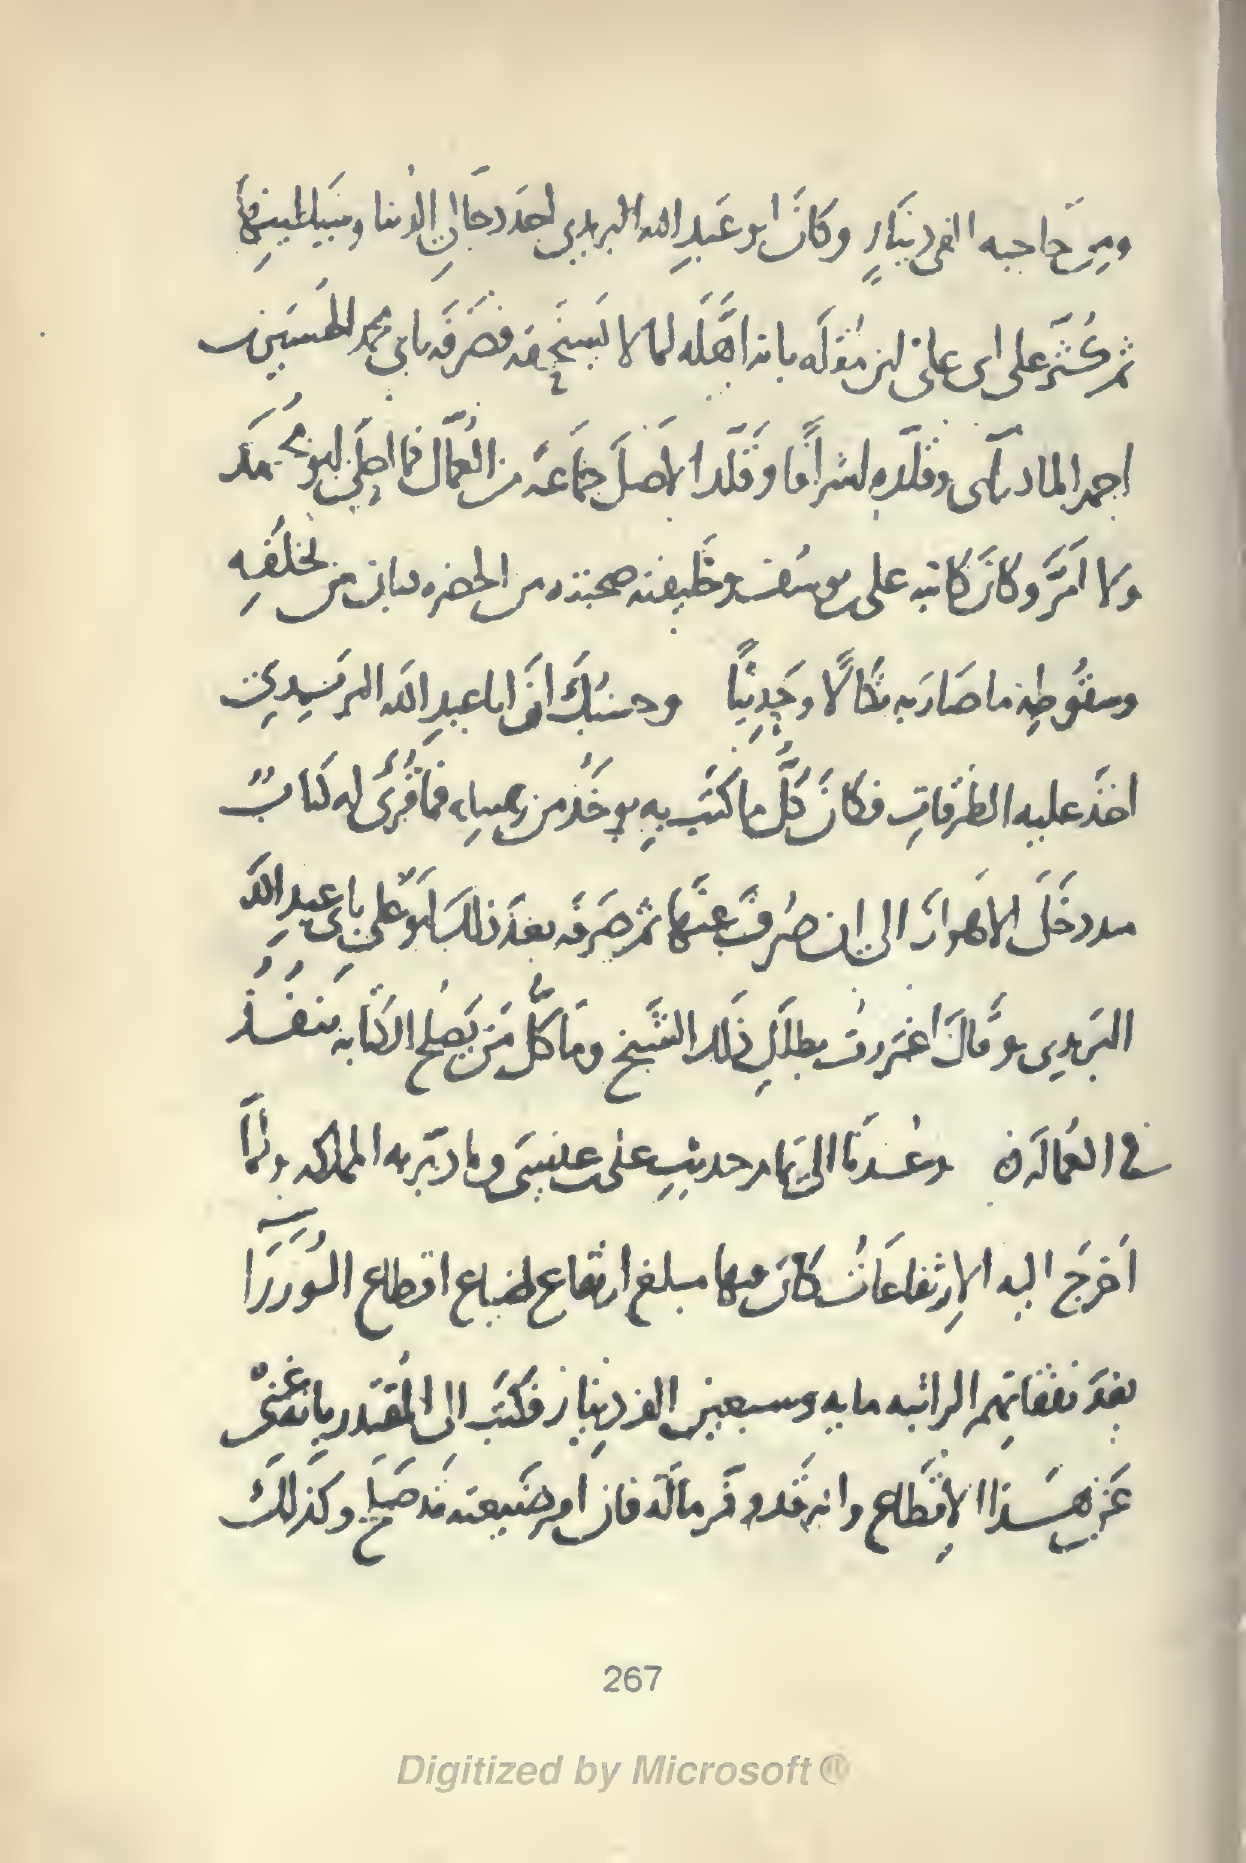 ومن حاجبه الفى دينارٍ وكانَ ابو عَبدِ الله البريدى احدَ دجَّالى الدُنيا وشياطينها
ثم كثَّر على ابى على بن مُقلَه بانه اهَّلَه لما لا يَستحِقه فصَرَفَه بابى محمد الحُسَين بن
احمد الماذرآىى وقلّده اشرافًا وقَلّد الاصلَ جَماعَة من العُمّال فما احلى ابو محمد
ولا امَرَّ وكانَ كاتبه على بن يوسُف وخليفته صحبته من الحضره فبان من تخلّفِه
وسقُوطِه ما صَارَ به نكالًا وحَديثًا وحسبُكَ انَّ ابا عبدِ الله البريدىَّ
اخذَ عليه الطرقاتِ فكانَ كلُّ ما كتَب بهِ يوخَذُ من رسله فما قُرىَ له كتابٌ
مند دخَلَ الاهوازَ الى ان صُرِفَ عنها ثم صَرفَه بعدَ ذلك ابو على بابى عبدِ اللهِ
البَريدى وقالَ اغتررتُ بطلَلِ ذلك الشَيخ وما كلُّ مَن يَصلح للكتابه ينفُذُ
فى العُمالَه وعُدنا الى تمام حديثِ على بن عيسَى وما دبّر به المملكه ولمَّا
اَخرَجَ اليه الاِرتفاعَاتُ كانَ فيها مبلغ ارتفاع ضياع اقطاع الوُزَرَا
بعدَ نفقاتِهم الراتبه مايه وسبعين الف دينار فكتَب الى المُقتَدر بانه غنىٌّ
عَن هَذا الاِقطاع وانه قَد وفّر مالَه فان اَمر ضَيعته قد صَلح وكذلكَ
267
Digitized by Microsoft ®